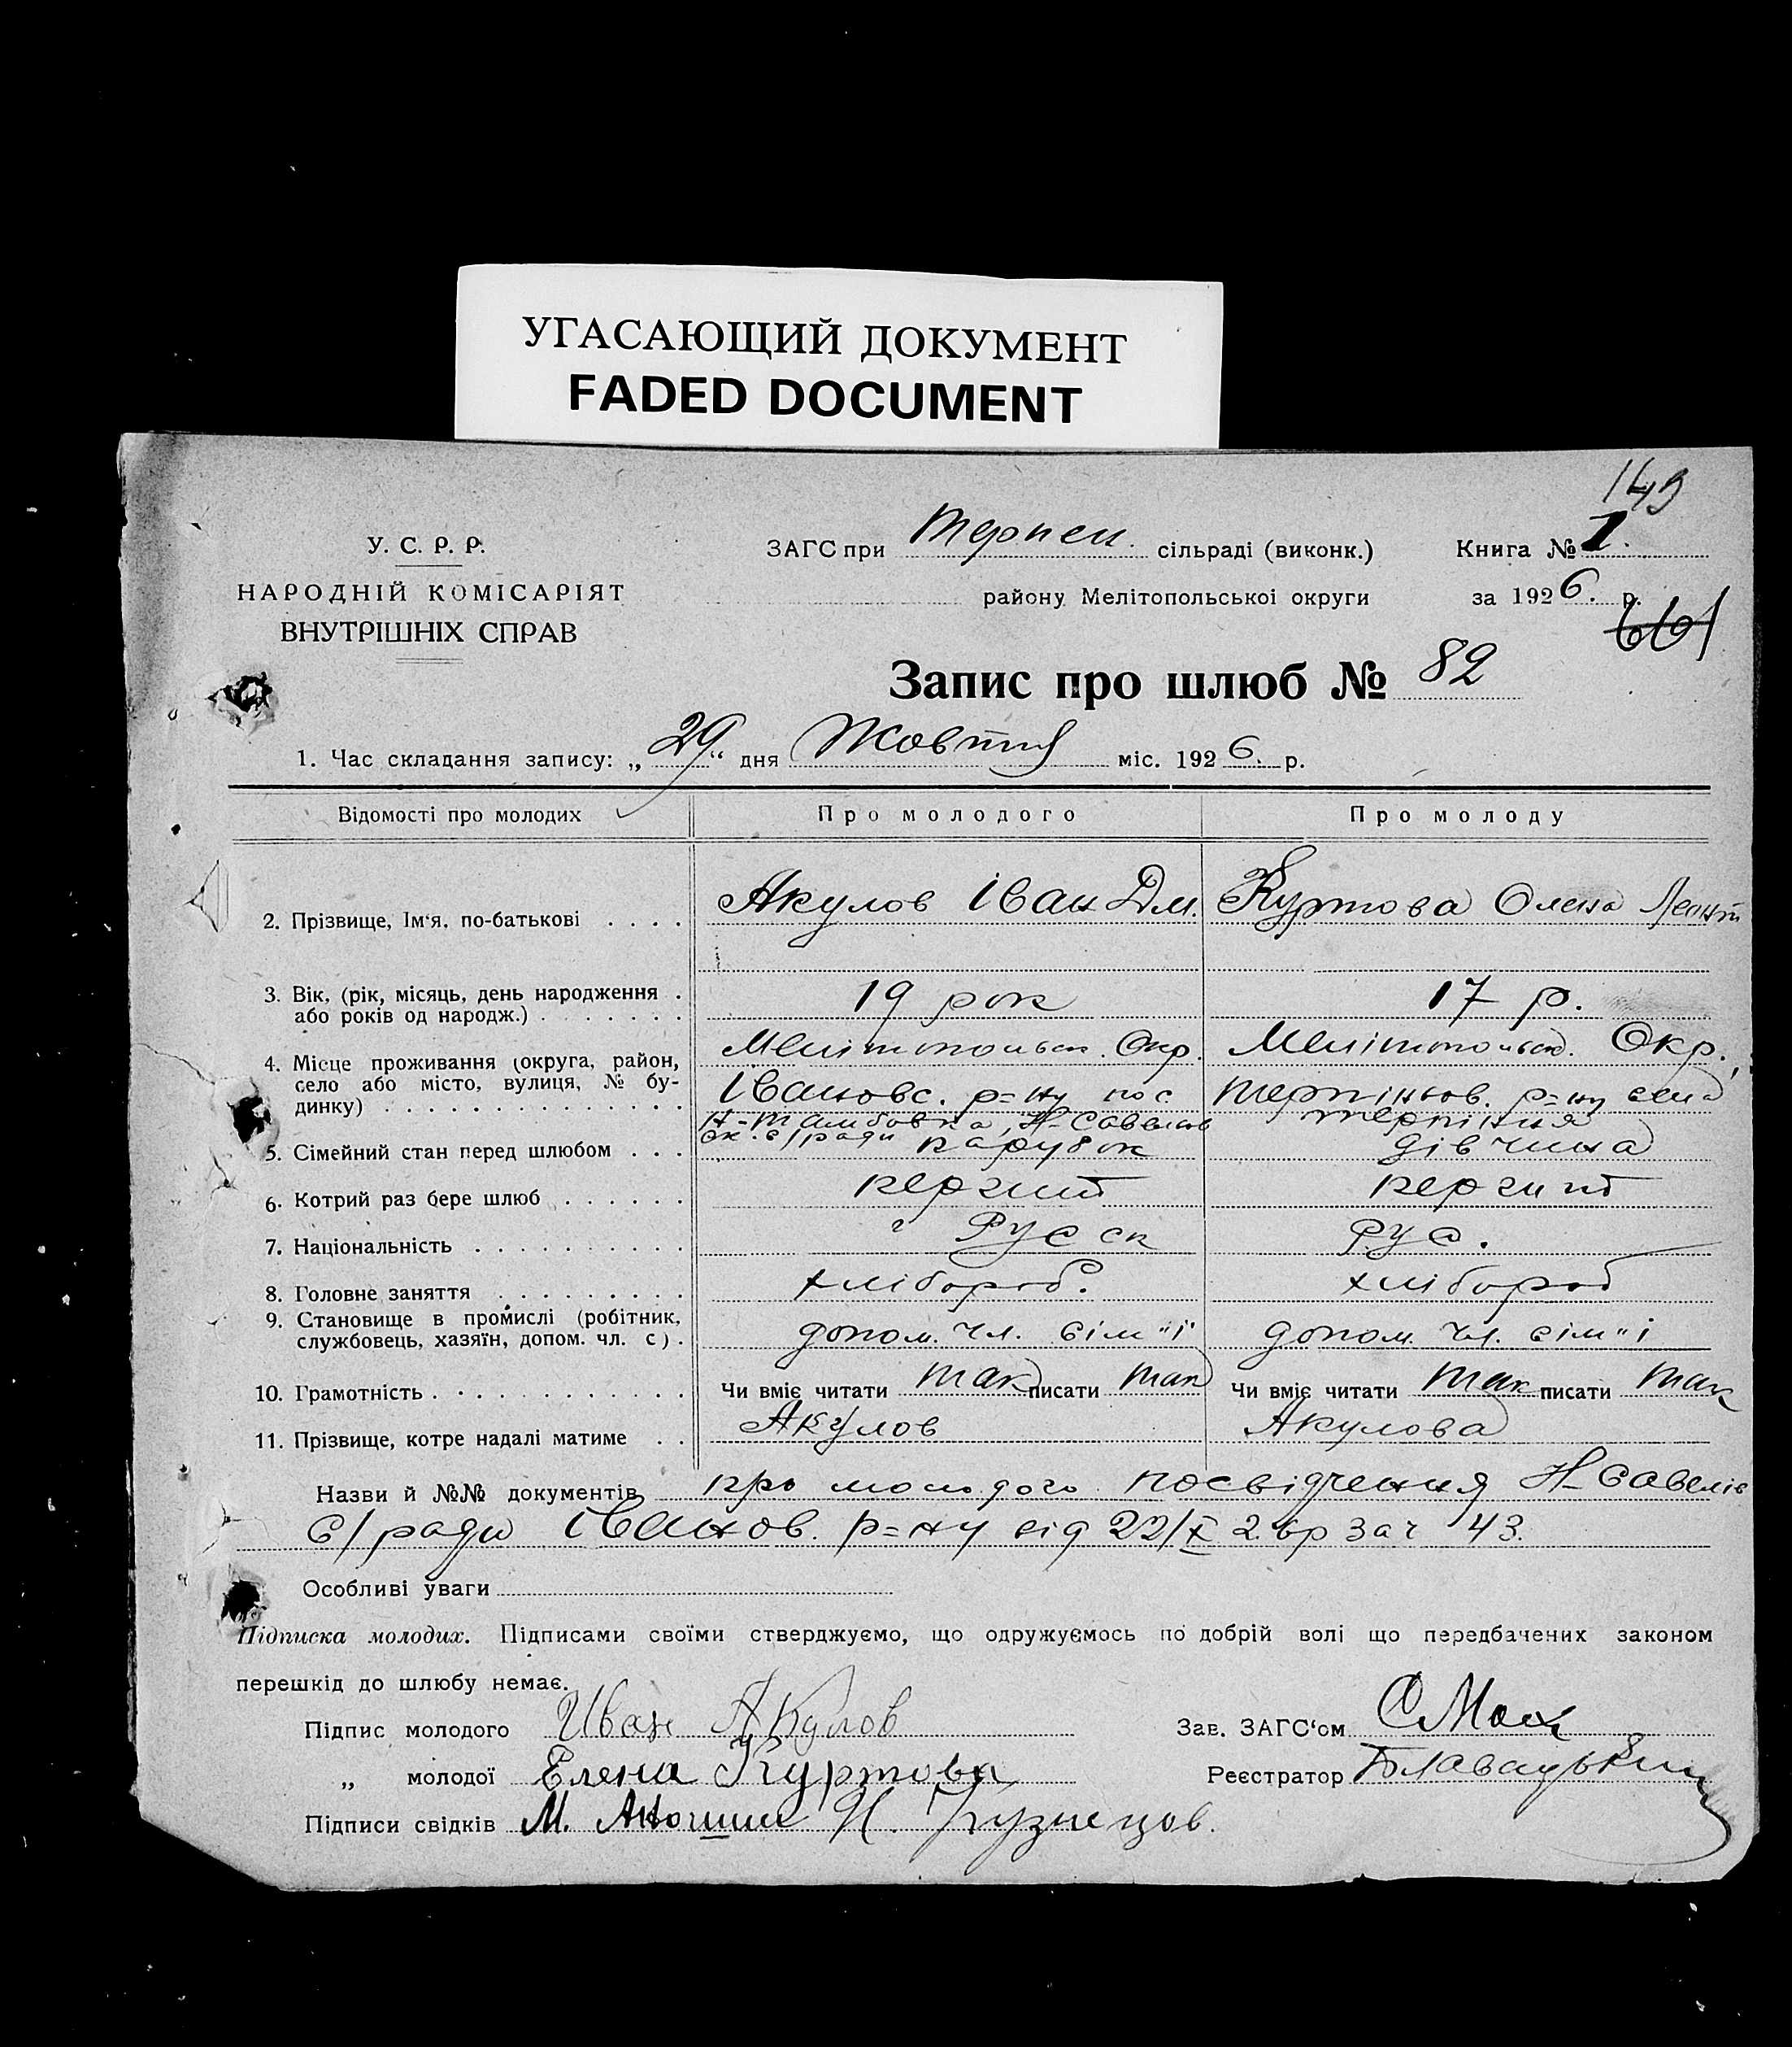 УГАСАЮЩИЙ ДОКУМЕНТ
FADED DOCUMENT
149
У. С. Р. Р.
НАРОДНІЙ КОМІСАРІЯТ
ВНУТРІШНІХ СПРАВ
ЗАГС при Терпен. сільраді (виконк.)
району Мелітопольської округи
Книга № 1.
за 1926. р.
661
Запис про шлюб № 82
1. Час складання запису: „29“ дня Жовтня міс. 1926. р.
Відомості про молодих Про молодого Про молоду
2. Прізвище, Ім‘я, по-батькові . . . . Акулов Іван Дм. Куртова Олена Леонт
3. Вік, (рік, місяць, день народження . або років од народж.) . . . . . . . 19 рок 17 р.
4. Місце проживання (округа, район, село або місто, вулиця, № будинку) . . . . . . . . . . . . . . .
Мелітопольськ. Окр. Івановс. р=ну пос Н-Тамбовка, Н-Савелов с/ради
Мелітопольсь. Окр., Терпіньов. р=ну села Терпіння
5. Сімейний стан перед шлюбом . . . парубок дівчина
6. Котрий раз бере шлюб . . . . . . перший перший
7. Національність . . . . . . . . . Русск Рус.
8. Головне заняття . . . . . . . . . хлібороб. хлібороб
9. Становище в промислі (робітник, службовець, хазяїн, допом. чл. с) . допом. чл. сім"ї допом. чл. сім"ї
10. Грамотність . . . . . . . . . . . . Чи вміє читати так писати так Чи вміє читати так писати так
11. Прізвище, котре надалі матиме . . Акулов Акулова
Назви й №№ документів про молодого посвідчення Н-Савелів
с/ради Іванов. р=ну від 22/X 26р за ч 43.
Особливі уваги
Підписка молодих. Підписами своїми стверджуємо, що одружуємось по добрій волі що передбачених законом
перешкід до шлюбу немає.
Підпис молодого Иван Акулов
Зав. ЗАГС‘ом
„ молодої Елена Куртова
Реєстратор
Підписи свідків М. И. Кузнецов.